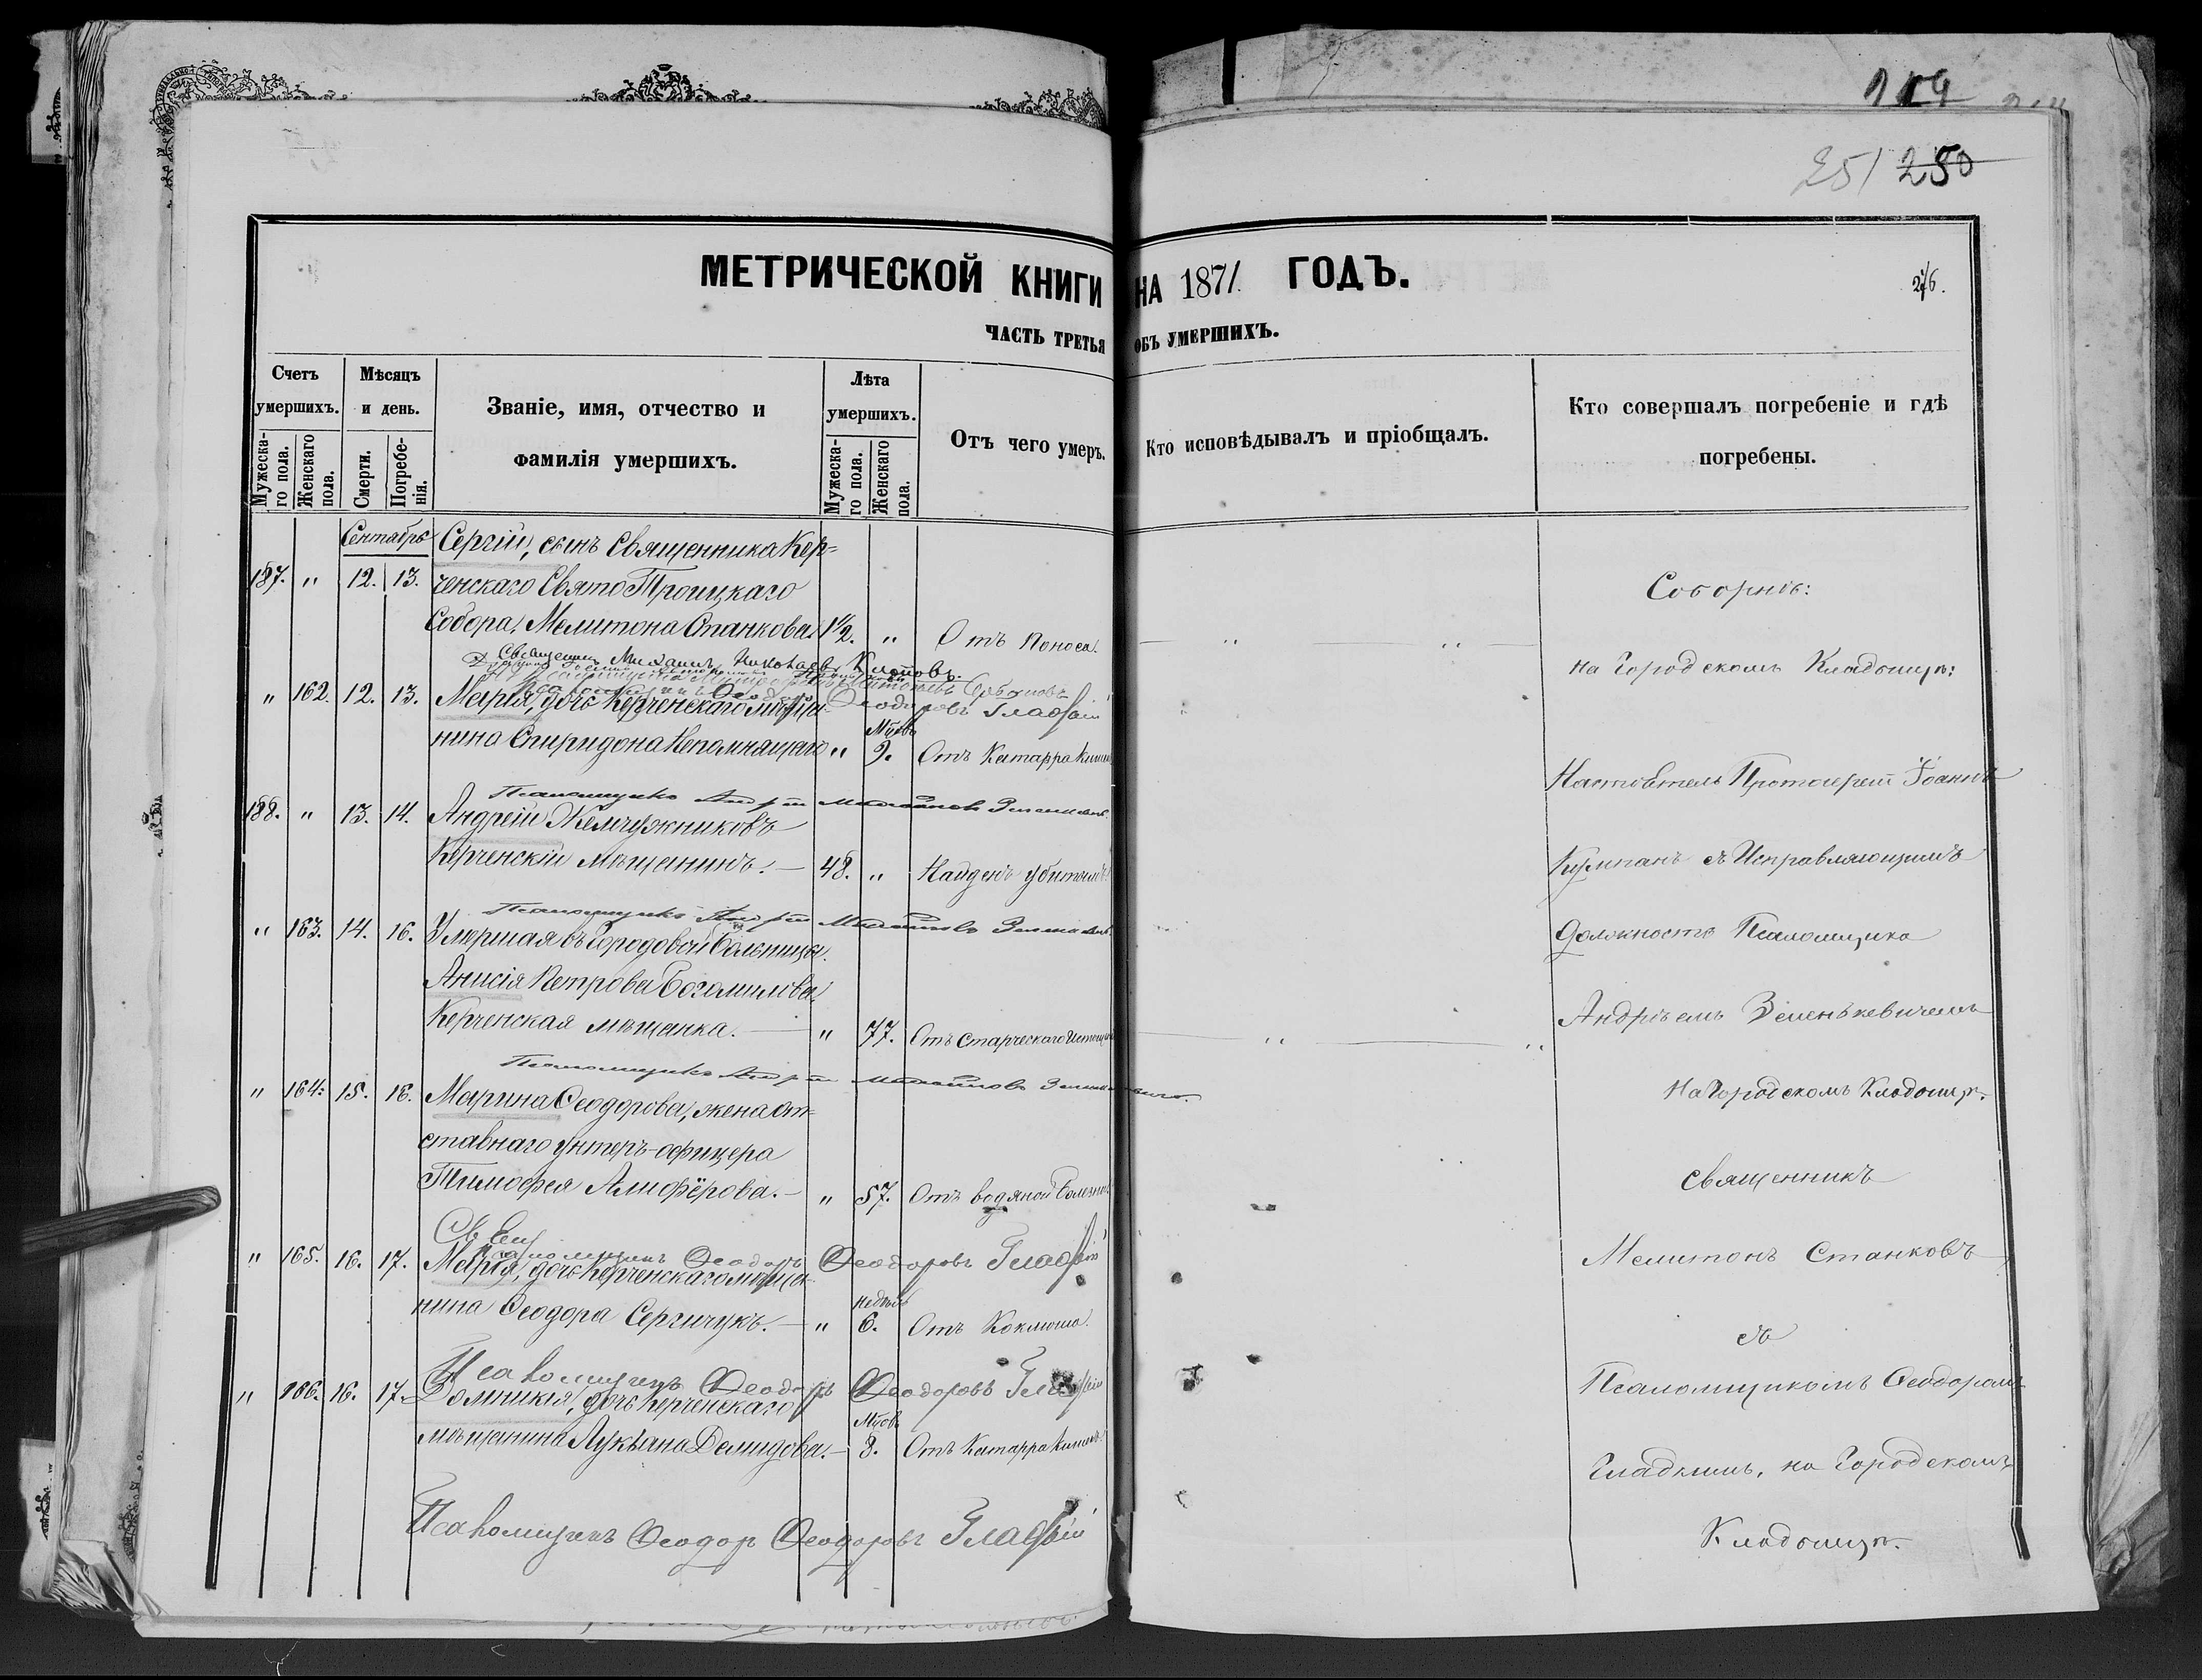 251 250
МЕТРИЧЕСКОЙ КНИГИ НА 1871 ГОДЪ.
ЧАСТЬ ТРЕТЬЯ ОБЪ УМЕРШИХЪ.
Счетъ умершихъ.
Мужеска-го пола.
Женскаго пола.
Мѣсяцъ и день.
Смерти.
Погребе-нія.
Званіе, имя, отчество и
фамилія умершихъ.
Лѣта умершихъ.
Мужеска-го пола.
Женскаго пола.
Отъ чего умеръ.
Кто исповѣдывалъ и пріобщалъ.
Кто совершалъ погребеніе и гдѣ
погребены.
Сентябрь Сергій, сынъ Священника Кер=
187. " 12. 13. ченскаго Свято Троицкаго
Собора, Мелитона Станкова 1 1/2. " Отъ Поноса.
Священникъ Михаилъ Николаевъ
" 162. 12. 13. Марія, дочь Керченскаго мѣща-
Ѳеодоровъ Гладкій
нина Спиридона Непомнящаго " Мцовъ 9. Отъ Катарра
Псаломщикъ Андрей
188. " 13. 14. Андрей Жемчужниковъ
Керченскій мѣщанинъ. — 48. " Найденъ убитымъ
Псаломщикъ Андрей
" 163. 14. 16. Умершая въ Городовой Больницы.
Анисія Петрова Богомилова
Керченская мѣщанка. — " 77. Отъ Старческаго
Псаломщикъ Андрей
" 164. 15. 16. Марина Ѳеодорова, жена от=
ставнаго унтеръ-офицера
Тимофея Алифёрова. — " 57. Отъ водяной Болезни
Псаломщикъ Ѳеодоръ Ѳеодоровъ Гладкій
" 165. 16. 17. Марія, дочь Керченскаго мѣща-
нина Ѳеодора Сергичукъ. — " недѣль 6. Отъ Коклюша.
Псаломщикъ Ѳеодоръ Ѳеодоровъ Гладкій
" 166. 16. 17. Домникія, дочь Керченскаго
мѣщанина Лукьяна Демидова. — Мцовъ 8. Отъ Катарра
Псаломщикъ Ѳеодор Ѳеодоровъ Гладкій
Соборнѣ:
на Городскомъ Кладбищѣ:
Настоятель Протоіерей Іоаннъ
Кумпанъ съ Исправляющимъ
должность Псаломщика
Андріемъ Зеленькевичемъ
На Городскомъ Кладбищѣ.
Священникъ
Мелитонъ Станковъ
съ
Псаломщикомъ Ѳеодоромъ
Гладкимъ, на Городскомъ
Кладбищѣ.